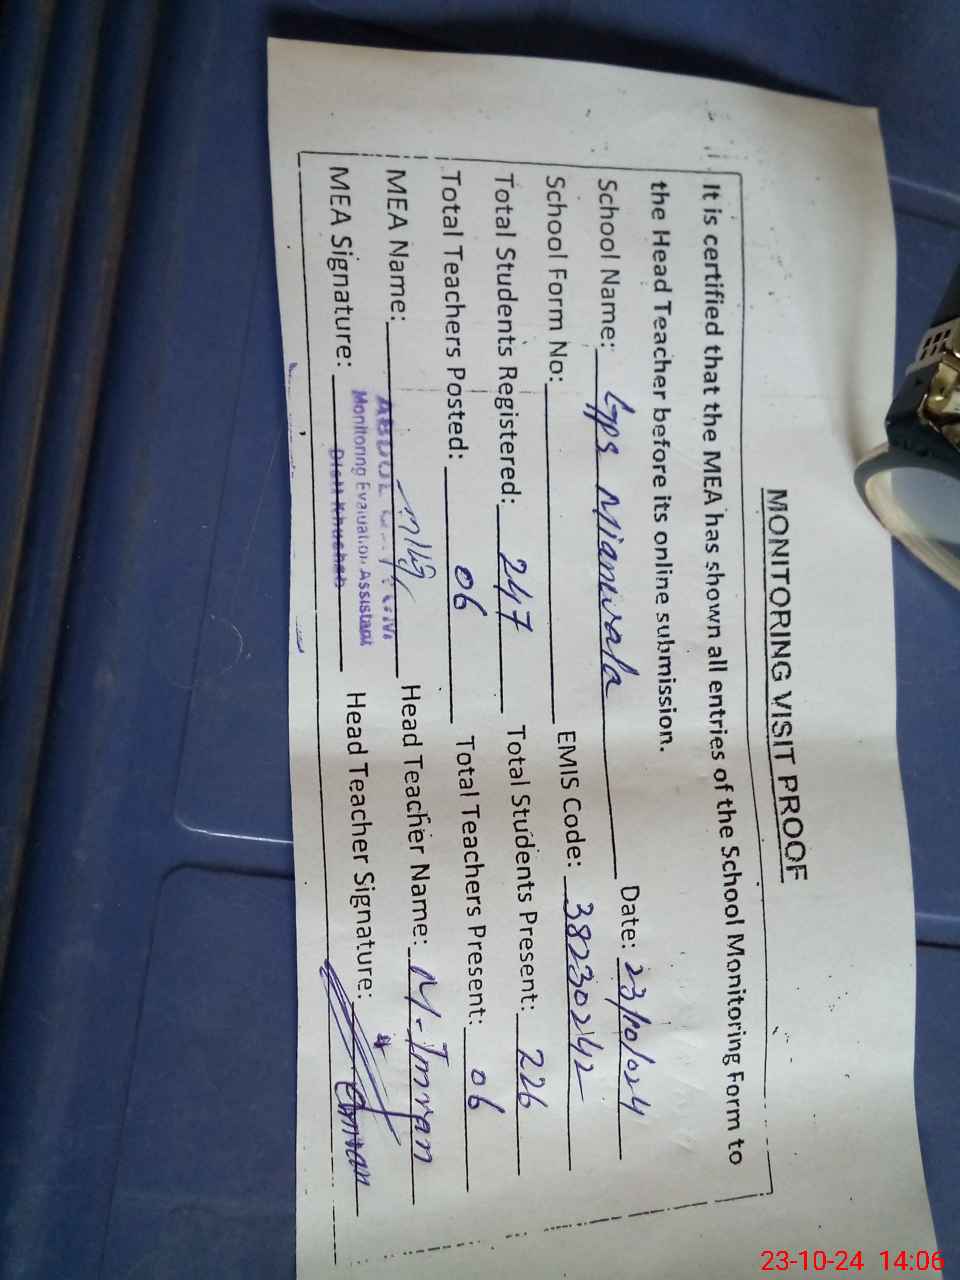 MONITORING VISIT PROOF
It is certified that the MEA has shown all entries of the School Monitoring Form to
the Head Teacher before its online submission.
School Name: Gps Mianwala Date: 23/10/024
School Form No: EMIS Code: 38230242
Total Students Registered: 247 Total Students Present: 226
Total Teachers Posted: 06 Total Teachers Present: 06
MEA Name: ABDUL Head Teacher Name: M-Imran
Monitoring Evaluation Assistant
MEA Signature: Distt Khushab Head Teacher Signature:
23-10-24 14:06